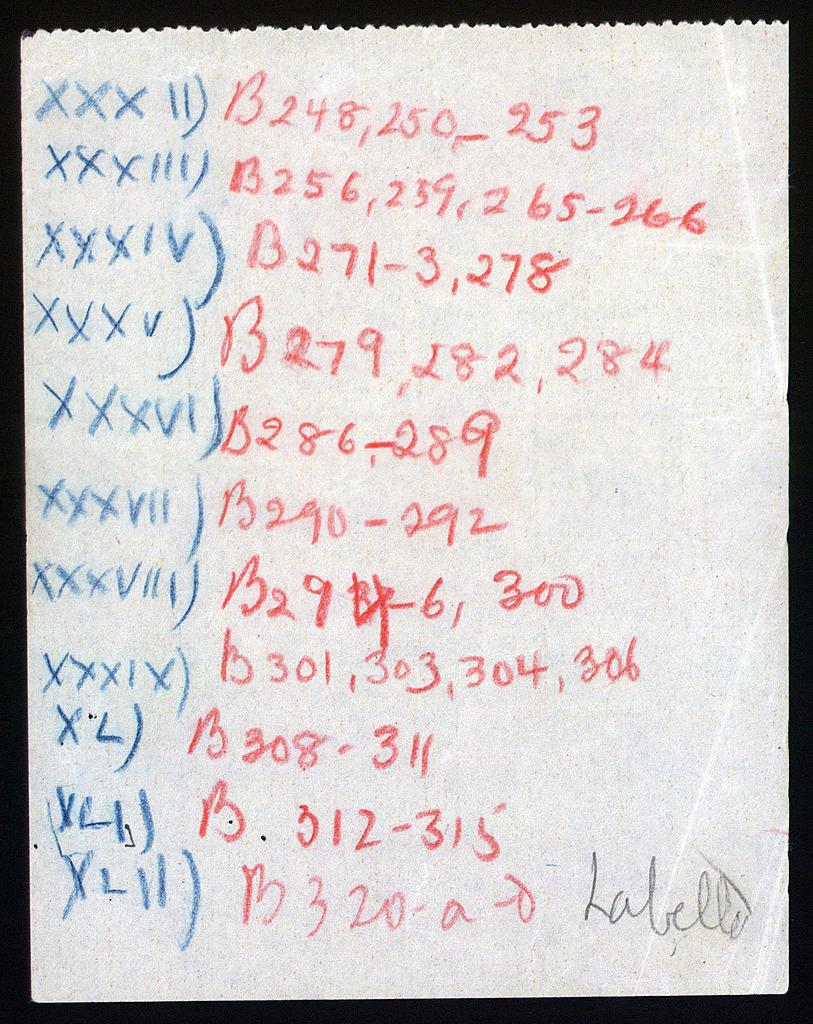 XXXII) B248, 250 - 253
XXXIII) B256, 259, 265-266
XXXIV) B271-3, 278
XXXV) B279, 282, 284
XXXVI) B286-289
XXXVII) B290-292
XXXVIII) B294-6, 300
XXXIX) B301, 303, 304, 306
XL) B308-311
XLI) B. 312-315
XLII) B320-a-D Labelled